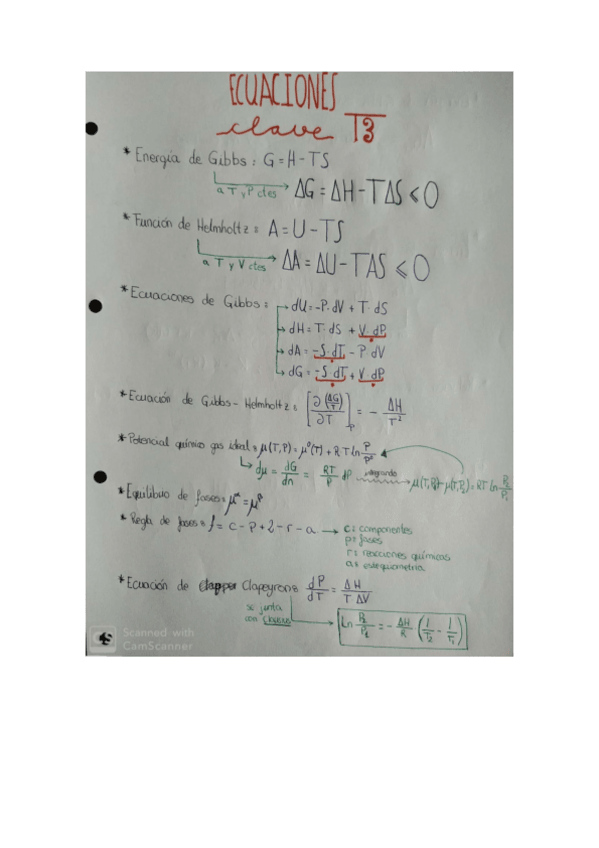 ECUACIONES
clave T3
* Energía de Gibbs: G = H - TS
a T y P ctes → ΔG = ΔH - TΔS ≤ 0
* Función de Helmholtz: A = U - TS
a T y V ctes → ΔA = ΔU - TΔS ≤ 0
* Ecuaciones de Gibbs: → dU = -P·dV + T·dS
→ dH = T·dS + V·dP
→ dA = -S·dT - P·dV
→ dG = -S·dT + V·dP
* Ecuación de Gibbs-Helmholtz: [∂(ΔG/T)/∂T]P = - ΔH/T²
* Potencial químico gas ideal: μ(T,P) = μ⁰(T) + RT ln P/P⁰
dμ = dG/dn = RT/P dP integrando → μ(T,P₂) - μ(T,P₁) = RT ln P₂/P₁
* Equilibrio de fases: μᵅ = μᵝ
* Regla de fases: f = c - p + 2 - r - a → c = componentes
p = fases
r = reacciones químicas
a = estequiometría
* Ecuación de Clapeyron: dP/dT = ΔH/TΔV
se junta
con Clausius → Ln P₂/P₁ = - ΔH/R (1/T₂ - 1/T₁)
Scanned with
CamScanner